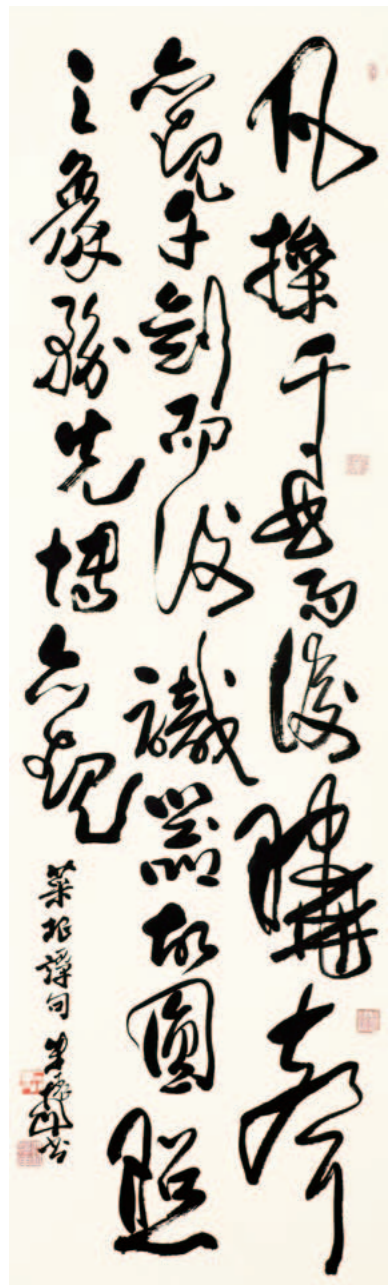 凡操千曲而後曉聲
觀千劍而後識器故圓照
之象務先博觀
菜根譚句